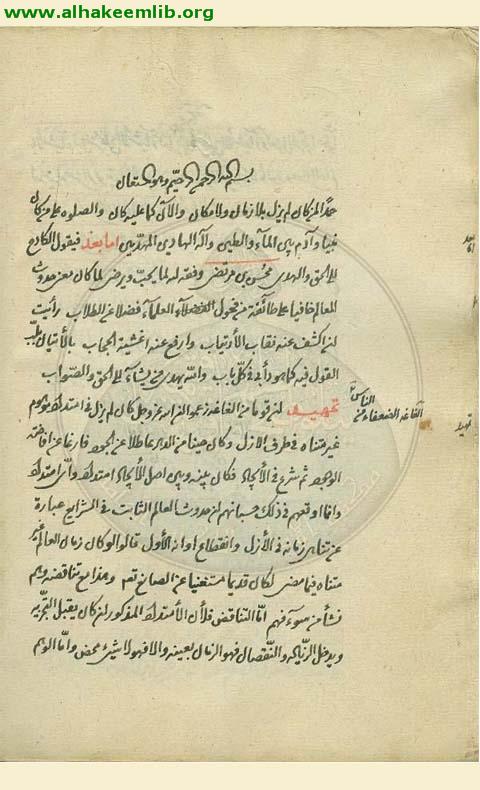 www.alhakeemlib.org
بسم الله الرحمن الرحيم وبه المستعان
حمدا لمن كان لم يزل بلا زمان ولا مكان والآن كما عليه كان والصلوه على من كان
نبيا وآدم بين المآء والطين وآله الهادين المهديين اما بعد فيقول الكادح
الى الحق والهدى محسن بن مرتضى وفقه له لما يحب ويرضى لما كان معنى حدوث
العالم خافيا على طائفة من فحول الفضلاء العلمآء فضلا عن الطلاب رأيت
ان اكشف عنه نقاب الأرتياب وارفع عنه اغشية الحجاب بالأتيان بلب
القول فيه كما هو دأبي في كل باب والله يهدي من يشاء الى الحق والصواب
تمهيد ان قوما من الفاغة زعموا ان الله عز وجل كان لم يزل في امتداد موهوم
غير متناه في طرف الازل وكان حينا من الدهر عاطلا عن الجود فارغا عن افاضة
الوجود ثم شرع في الأيجاد فكان بينه وبين اصل الأيجاد امتداد واي امتداد
وانما اوقعهم في ذلك حسبانهم ان حدوث العالم الثابت في الشرايع عبارة
عن تناهي زمانه في الأزل وانقطاع اوانه الأول قالوا لو كان زمان العالم غير
متناه فيما مضى لكان قديما مستغنيا عن الصانع تم وهذا مع تناقضه وهم
نشأ من سوء فهم اما التناقض فلأن الأمتداد المذكور ان كان يقبل التجزيه
ويدخل الزيادة والنقصان فهو الزمان بعينه والا فهو لا شيئ محض واما الوهم
الفاغه الضعفاء من
الناس
تمهيد